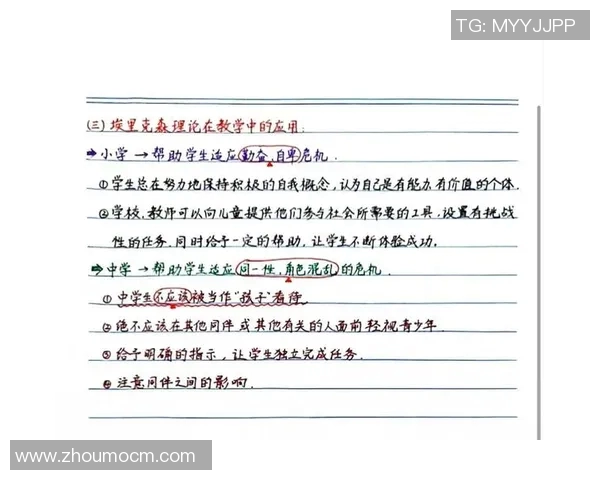 TG: MYYJJPP
(三)埃里克森理论在教学中的应用:
➾小学→帮助学生适应勤奋,自卑危机.
①学生总在努力地保持积极的自我概念,认为自己是有能力,有价值的个体.
②学校、教师可以向儿童提供他们参与社会所需要的工具,设置有挑战
性的任务.同时给予一定的帮助,让学生不断体验成功。
➾中学→帮助学生适应同一性,角色混乱的危机.
①中学生不应该被当作"孩子"看待
②绝不应该在其他同伴或其他有关的人面前轻视青少年.
③给予明确的指示,让学生独立完成任务.
④注意同伴之间的影响.
www.zhoumocm.com